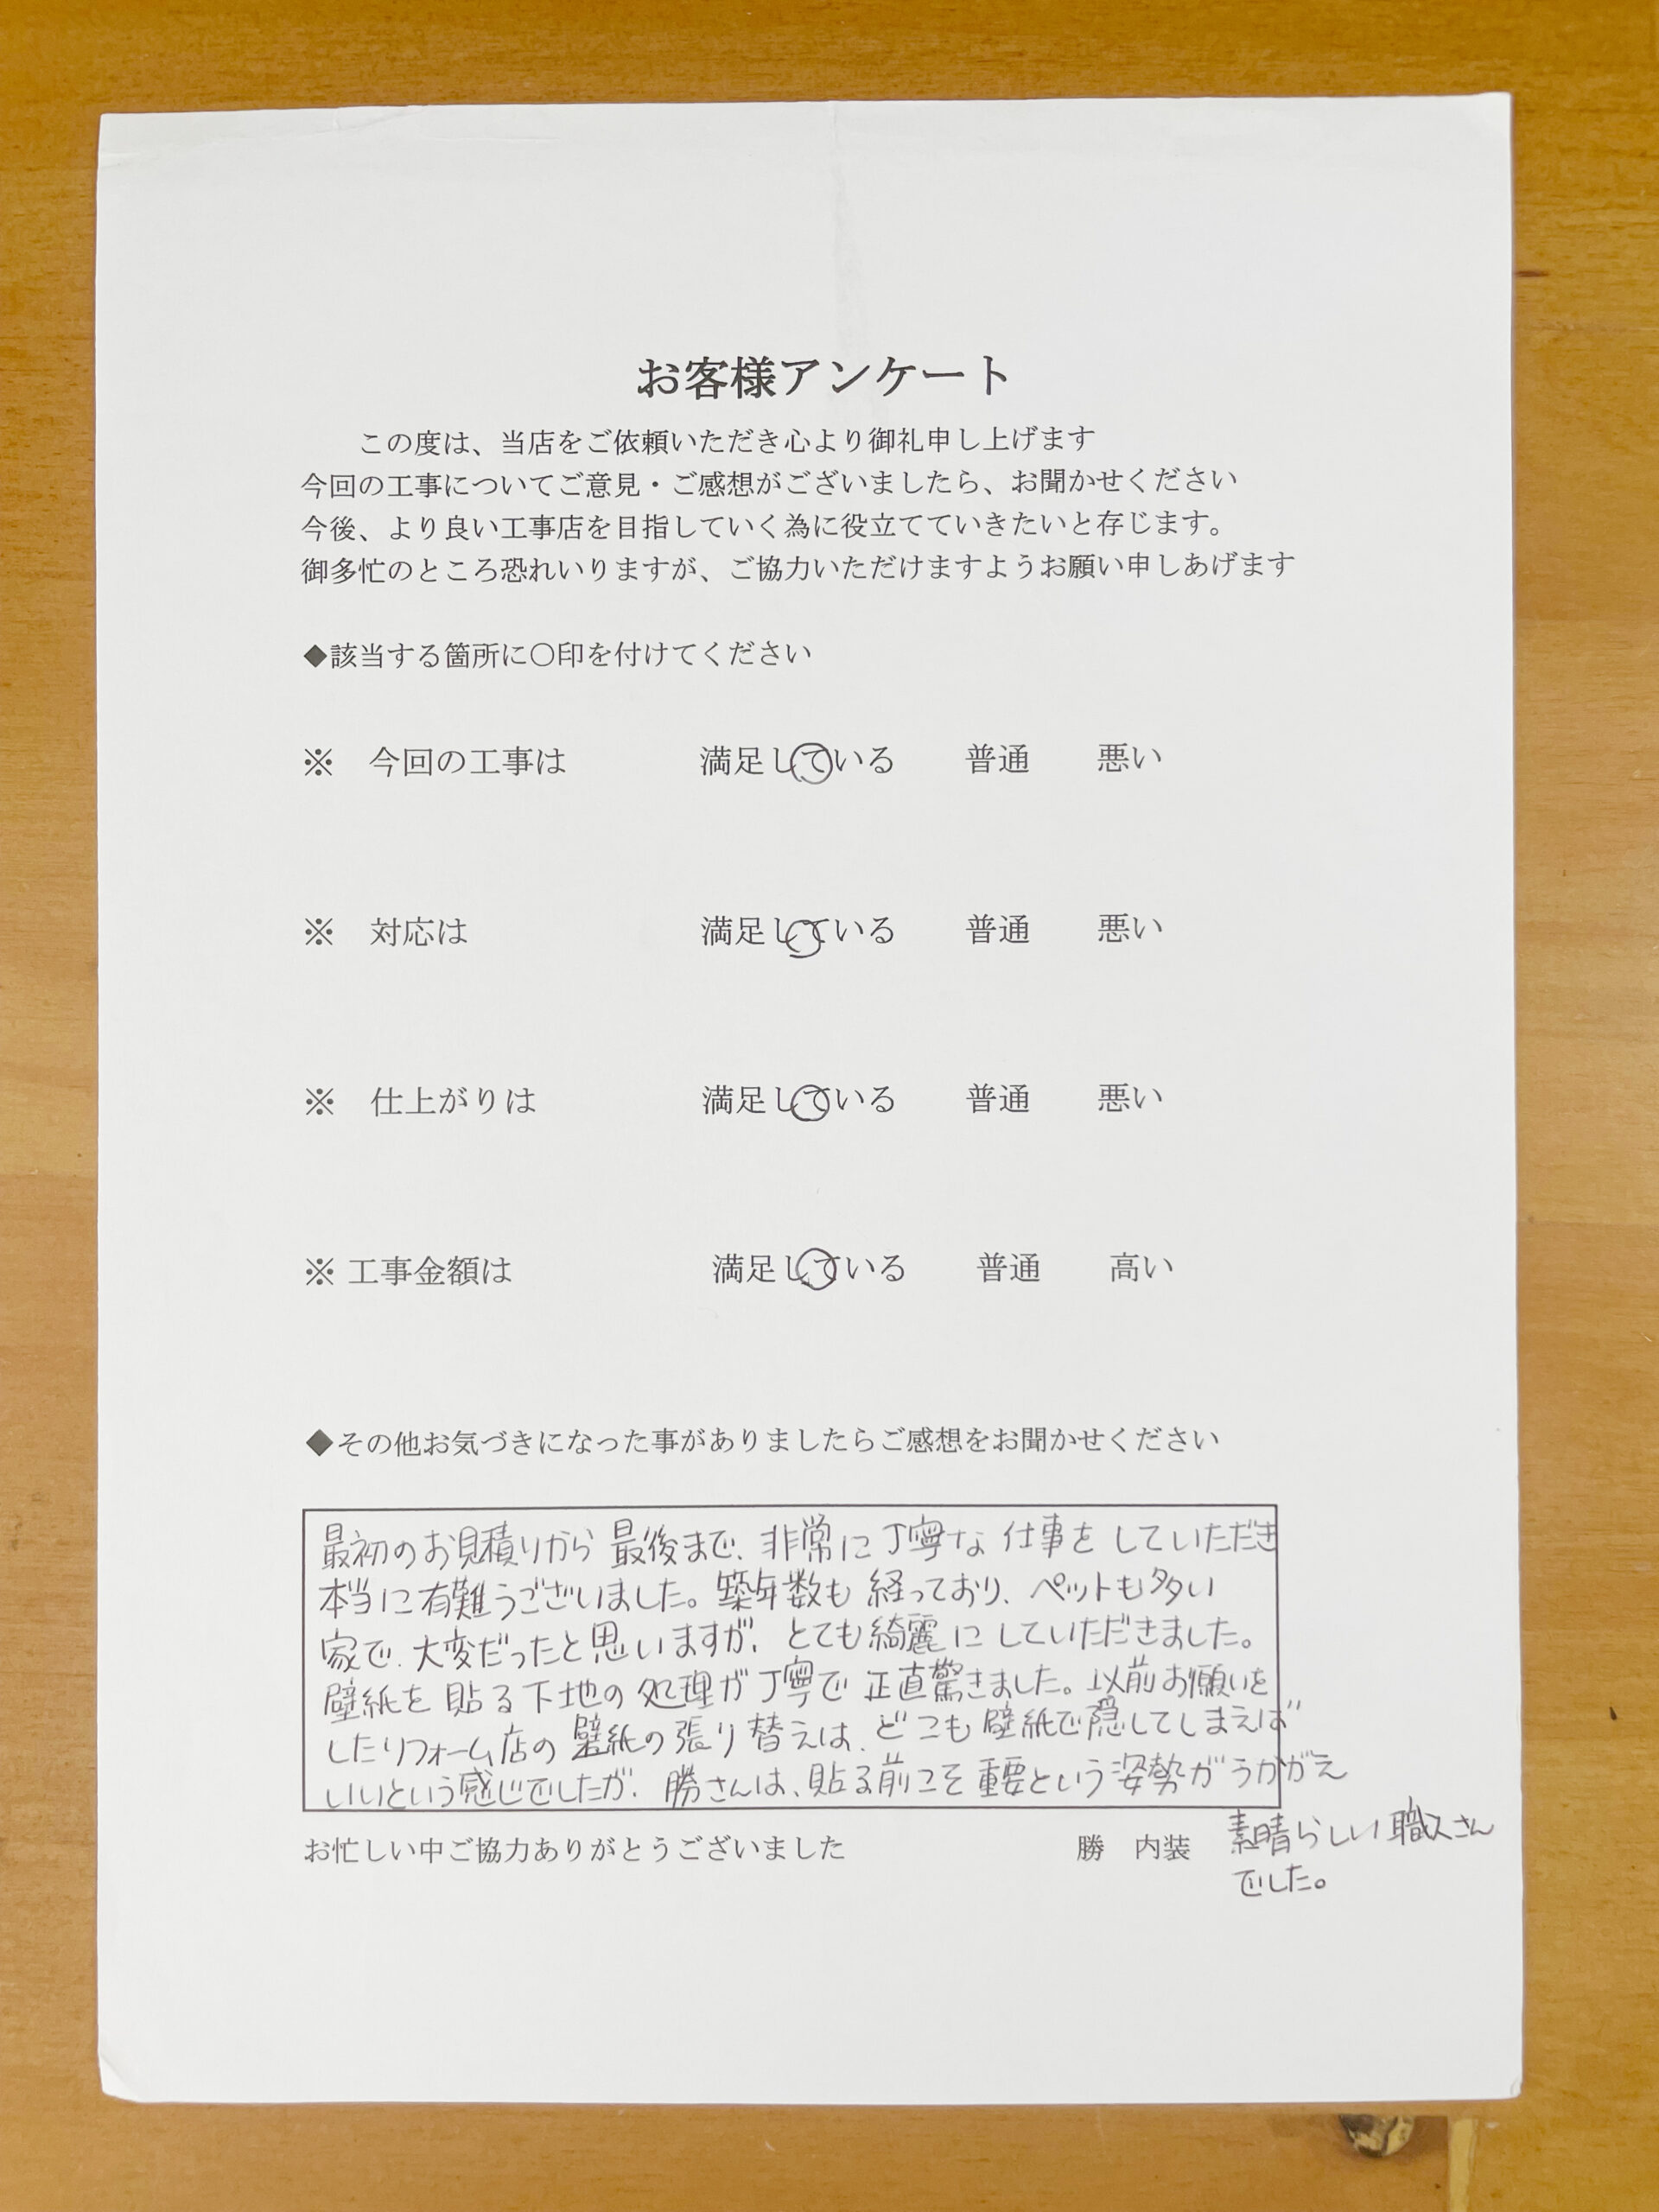 お客様アンケート
この度は、当店をご依頼いただき心より御礼申し上げます
今回の工事についてご意見・ご感想がございましたら、お聞かせください
今後、より良い工事店を目指していく為に役立てていきたいと存じます。
御多忙のところ恐れいりますが、ご協力いただけますようお願い申しあげます
◆該当する箇所に〇印を付けてください
※ 今回の工事は 満足している 普通 悪い
※ 対応は 満足している 普通 悪い
※ 仕上がりは 満足している 普通 悪い
※ 工事金額は 満足している 普通 高い
◆その他お気づきになった事がありましたらご感想をお聞かせください
最初のお見積りから最後まで、非常に丁寧な仕事をしていただき
本当に有難うございました。築年数も経っており、ペットも多い
家で、大変だったと思いますが、とても綺麗にしていただきました。
壁紙を貼る下地の処理が丁寧で正直驚きました。以前お願いを
したリフォーム店の壁紙の張り替えは、どこも壁紙で隠してしまえば
いいという感じでしたが、勝さんは、貼る前こそ重要という姿勢がうかがえ
素晴らしい職人さん
でした。
お忙しい中ご協力ありがとうございました 勝 内装